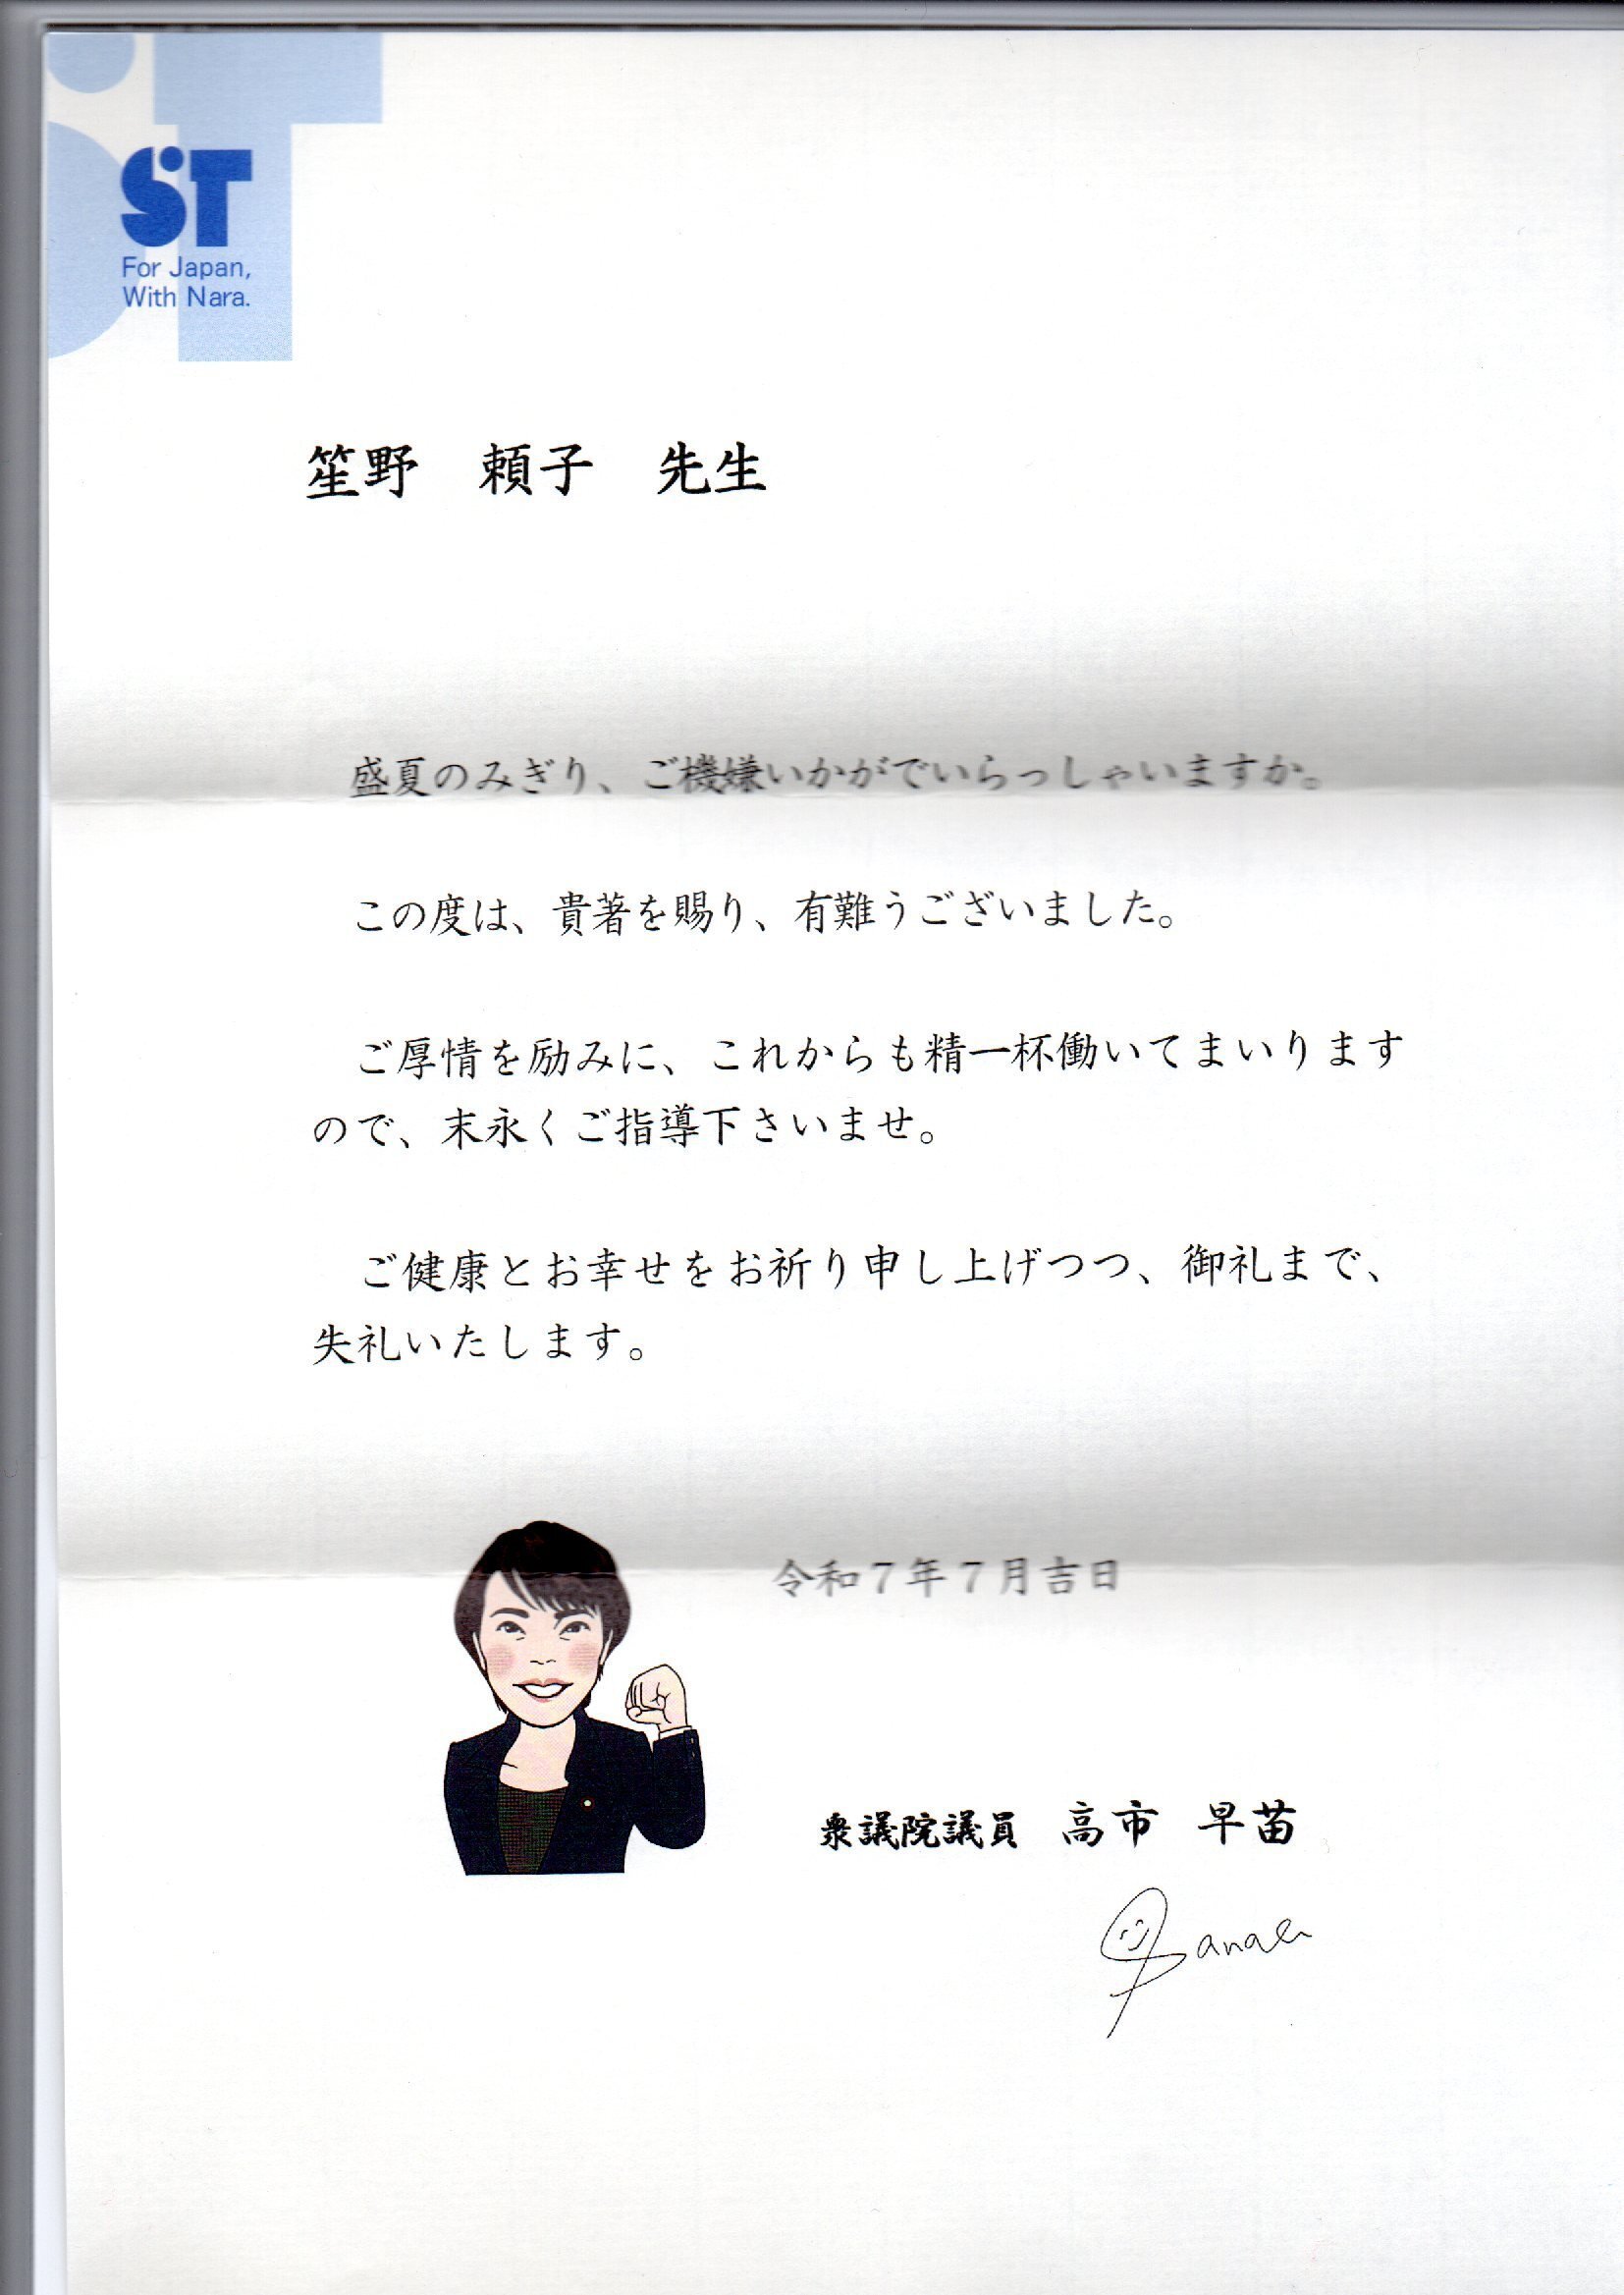 ST
For Japan,
With Nara.
笙野　頼子　先生
盛夏のみぎり、ご機嫌いかがでいらっしゃいますか。
この度は、貴著を賜り、有難うございました。
ご厚情を励みに、これからも精一杯働いてまいります
ので、末永くご指導下さいませ。
ご健康とお幸せをお祈り申し上げつつ、御礼まで、
失礼いたします。
令和７年７月吉日
衆議院議員　高市　早苗
Sanae